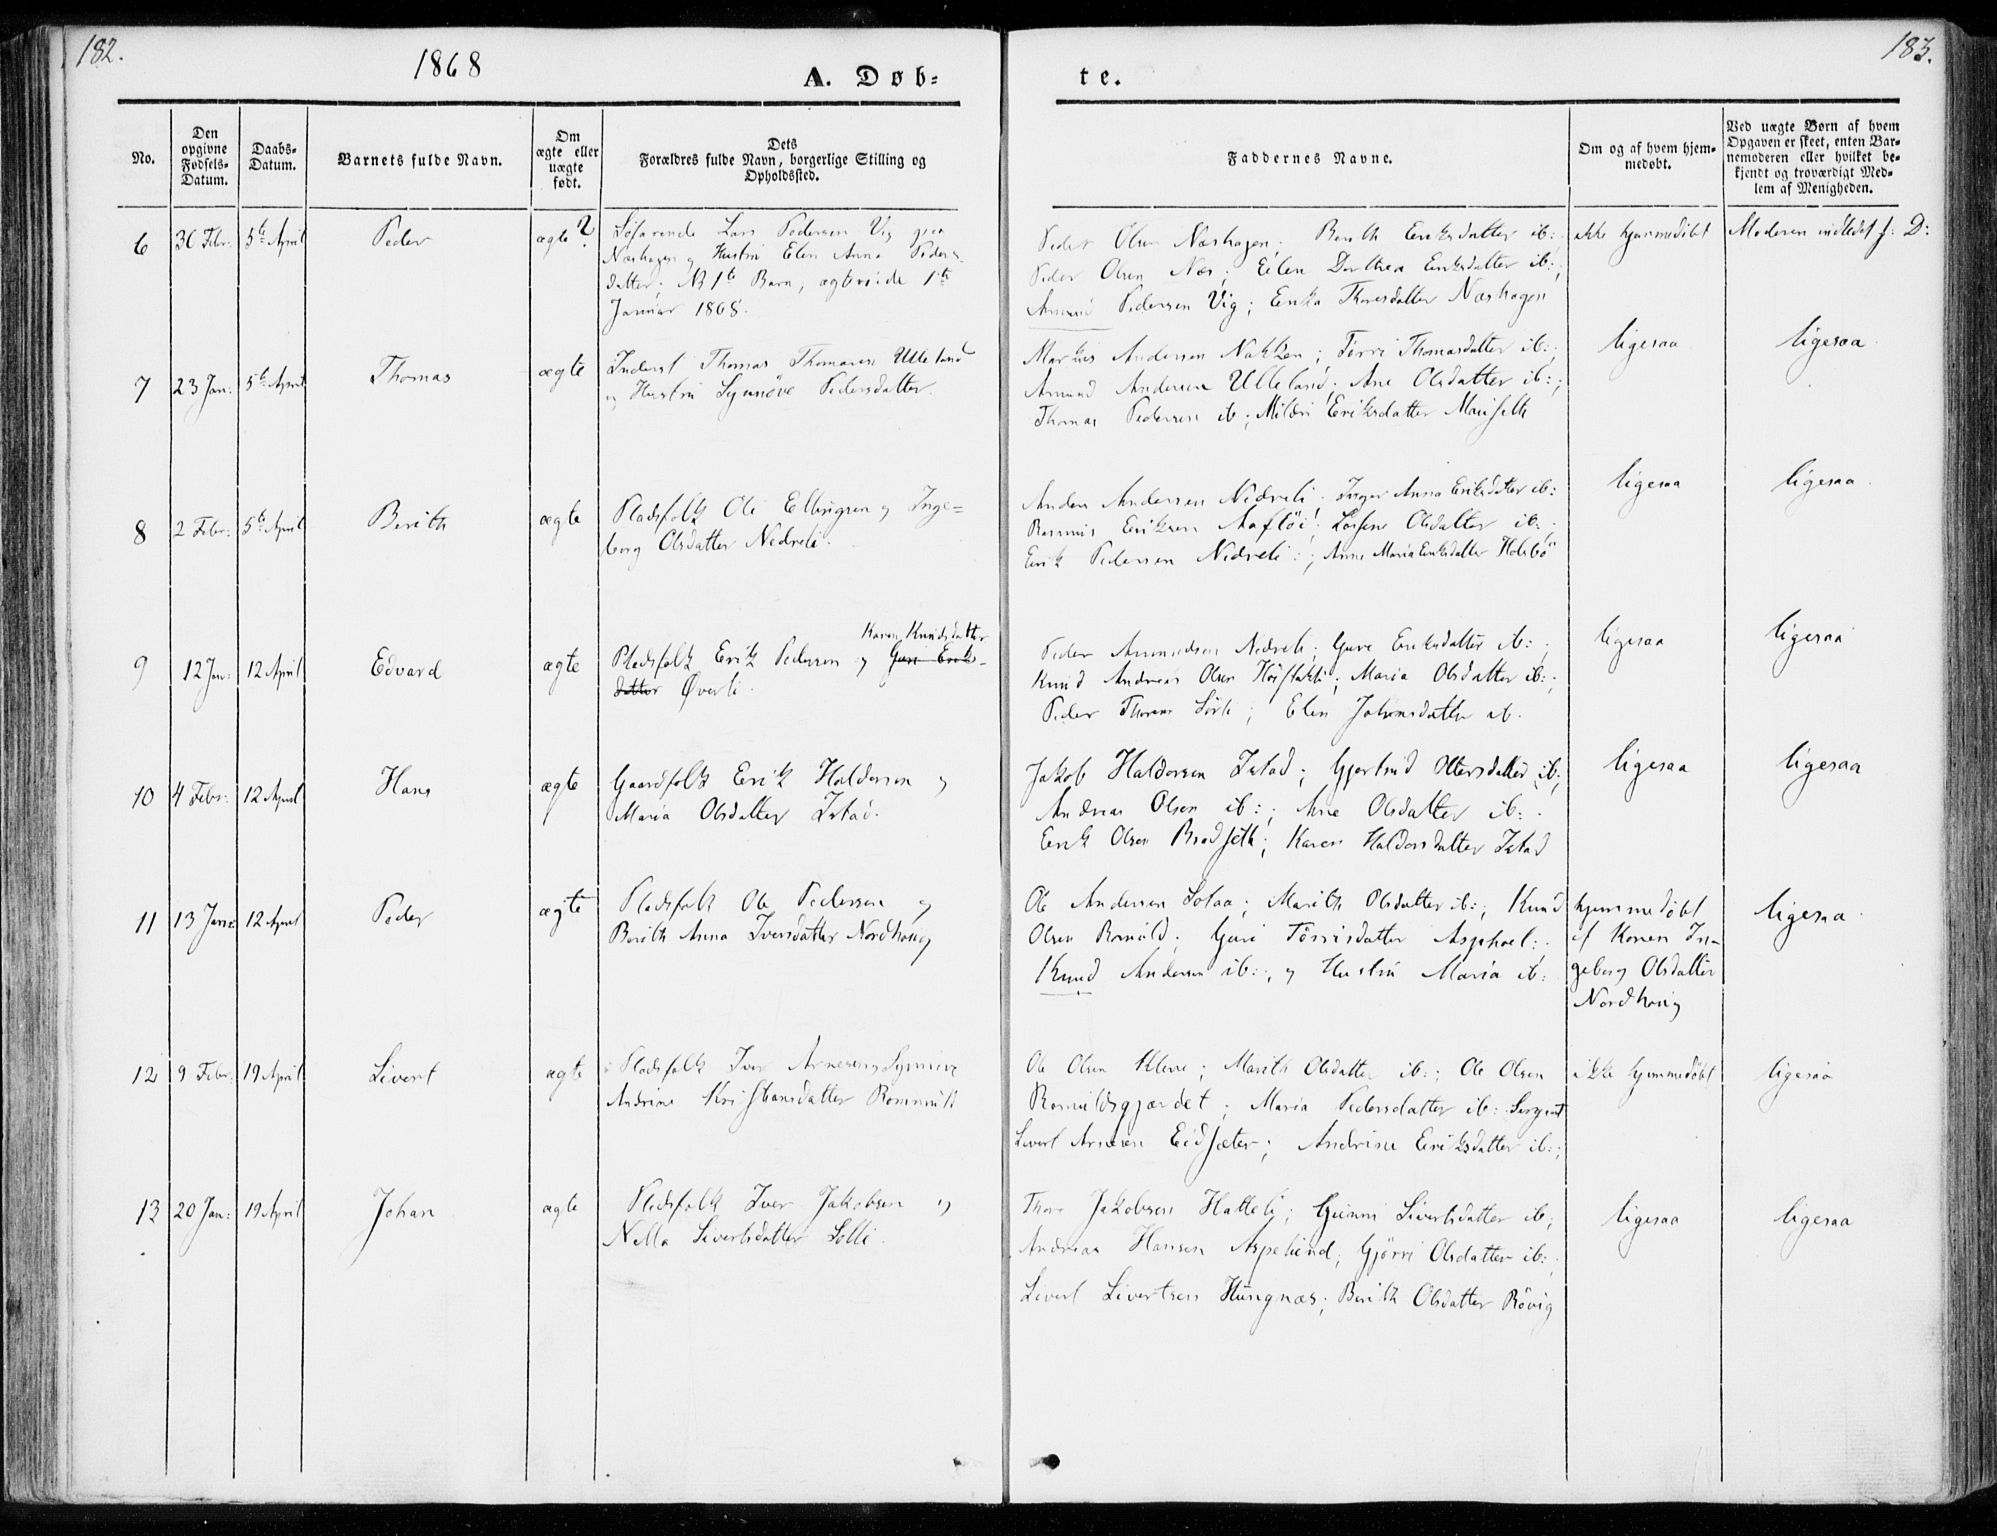 182.
1868
A. Døb-
te.
183.
No.
Den opgivne Fødsels-Datum.
Daabs-Datum.
Barnets fulde Navn.
Om ægte eller uægte født.
Dets Forældres fulde Navn, borgerlige Stilling og Opholdssted.
Faddernes Navne.
Om og af hvem hjem-medøbt.
Ved uægte Børn af hvem Opgaven er skeet, enten Bar-nemoderen eller hvilket be-kjendt og troværdigt Med-lem af Menigheden.
6
Febr:
5te April
Peder
ægte ?
Søfarende Lars Pedersen Vig paa
Næshagen og Hustru Elen Anna Peders-
datter; NB 1te Barn, ægteviede 1te
Januar 1868.
Peder Olsen Næshagen; Berith Eriksdatter ib:;
Peder Olsen Næs; Elen Dorthea Eriksdatter ib:;
Amund Pedersen Vig; Erika Thoresdatter Næshagen
ikke hjemmedøbt
Moderen indledet f: D:
7
23 Jan:
5te April
Thomas
ægte
Inderst Thomas Thomasen Ulleland
og Hustru Synnöve Pedersdatter.
Markus Andersen Nakken; Törri Thomasdatter ib:;
Amund Andersen Ulleland; Ane Olsdatter ib:;
Thomas Pedersen ib; Mildri Eriksdatter
ligesaa
ligesaa
8
2 Febr:
5te April
Berith
ægte
Pladsfolk Ole Ellingsen og Inge=
borg Olsdatter Nedreli.
Anders Andersen Nedreli; Inger Anna Eriksdatter ib:
Rasmus Eriksen; Olsdatter ib:;
Erik Pedersen Nedreli; Anne Maria Eriksdatter Holsbö
ligesaa
ligesaa
9
12 Jan:
12 April
Edvard
ægte
Karen Knudsdatter
Pladsfolk Erik Pedersen og Guri Eriks-
datter Øverli.
Peder Amundsen Nedreli; Guri Eriksdatter ib:;
Knud Andreas Olsen; Maria Olsdatter ib:;
Peder; Elen Johansdatter ib.
ligesaa
ligesaa
10
4 Febr:
12 April
Hans
ægte
Gaardfolk Erik Haldorsen og
Maria Olsdatter Istad.
Jakob Haldorsen Istad; Gjertrud Ottersdatter ib;
Andreas Olsen ib:; Ane Olsdatter ib:
Erik Olsen; Karen Haldorsdatter Istad
ligesaa
ligesaa
11
13 Janr:
12 April
Peder
ægte
Pladsfolk Ole Pedersen og
Berith Anna Iversdatter Nordhoug
Ole Andersen Solaa; Marith Olsdatter ib:; Knud
Olsen; Guri Törrisdatter Asphoel;
Knud Andersen ib:, og Hustru Maria ib:
hjemmedøbt
af Konen In-
geborg Olsdatter
Nordhoug
ligesaa
12
9 Febr:
19 April
Sivert
ægte
Pladsfolk Iver Arnesen og Synnöve
Andrine Kristiansdatter
Ole Olsen Kleve; Marith Olsdatter ib:; Ole Olsen
Romuldsgjærdet; Maria Pedersdatter ib: Sergeant
Sivert Arnesen Eidsæter; Andrine Eriksdatter ib:;
ikke hjemmedöbt
ligesaa
13
20 Jan:
19 April
Johan
ægte
Pladsfolk Iver Jakobsen og
Nella Sivertsdatter Solli.
Thore Jakobsen Hatteli; Gunni Sivertsdatter ib;
Andreas Hansen Aspelund; Gjörri Olsdatter ib:;
Sivert Sivertsen Hungnæs; Berith Olsdatter Rövig
ligesaa
ligesaa